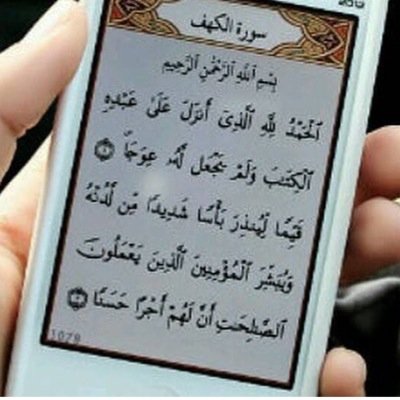 سورة الكهف
بِسْمِ ٱللَّهِ ٱلرَّحْمَٰنِ ٱلرَّحِيمِ
ٱلْحَمْدُ لِلَّهِ ٱلَّذِىٓ أَنزَلَ عَلَىٰ عَبْدِهِ
ٱلْكِتَٰبَ وَلَمْ يَجْعَل لَّهُۥ عِوَجَا ۝١
قَيِّمًا لِّيُنذِرَ بَأْسًا شَدِيدًا مِّن لَّدُنْهُ
وَيُبَشِّرَ ٱلْمُؤْمِنِينَ ٱلَّذِينَ يَعْمَلُونَ
ٱلصَّٰلِحَٰتِ أَنَّ لَهُمْ أَجْرًا حَسَنًا ۝٢
1079